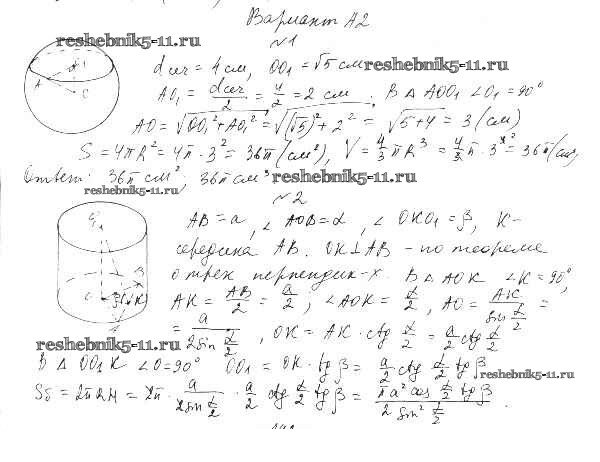 Вариант А2
reshebnik5-11.ru
№1
dсеч = 4 см, OO₁ = √5 см reshebnik5-11.ru
AO₁ = dсеч/2 = 4/2 = 2 см. В △ AOO₁ ∠O₁ = 90°
AO = √(OO₁² + AO₁²) = √((√5)² + 2²) = √(5+4) = 3 (см)
S = 4πR² = 4π · 3² = 36π (см²), V = 4/3 πR³ = 4/3 π · 3³ = 36π (см³)
Ответ: 36π см²; 36π см³ reshebnik5-11.ru
reshebnik5-11.ru №2
AB = a, ∠AOB = α, ∠OKO₁ = β, K-
середина AB. OK⊥AB - по теореме
о трех перпендик-х. В △ AOK ∠K = 90°,
AK = AB/2 = a/2, ∠AOK = α/2, AO = AK/sin α/2 =
= a/(2 sin α/2), OK = AK · ctg α/2 = a/2 ctg α/2
reshebnik5-11.ru
В △ OO₁K ∠O = 90° OO₁ = OK · tg β = a/2 ctg α/2 tg β
reshebnik5-11.ru
Sδ = 2πRH = 2π · a/(2 sin α/2) · a/2 ctg α/2 tg β = (πa² cos α/2 tg β)/(2 sin² α/2).